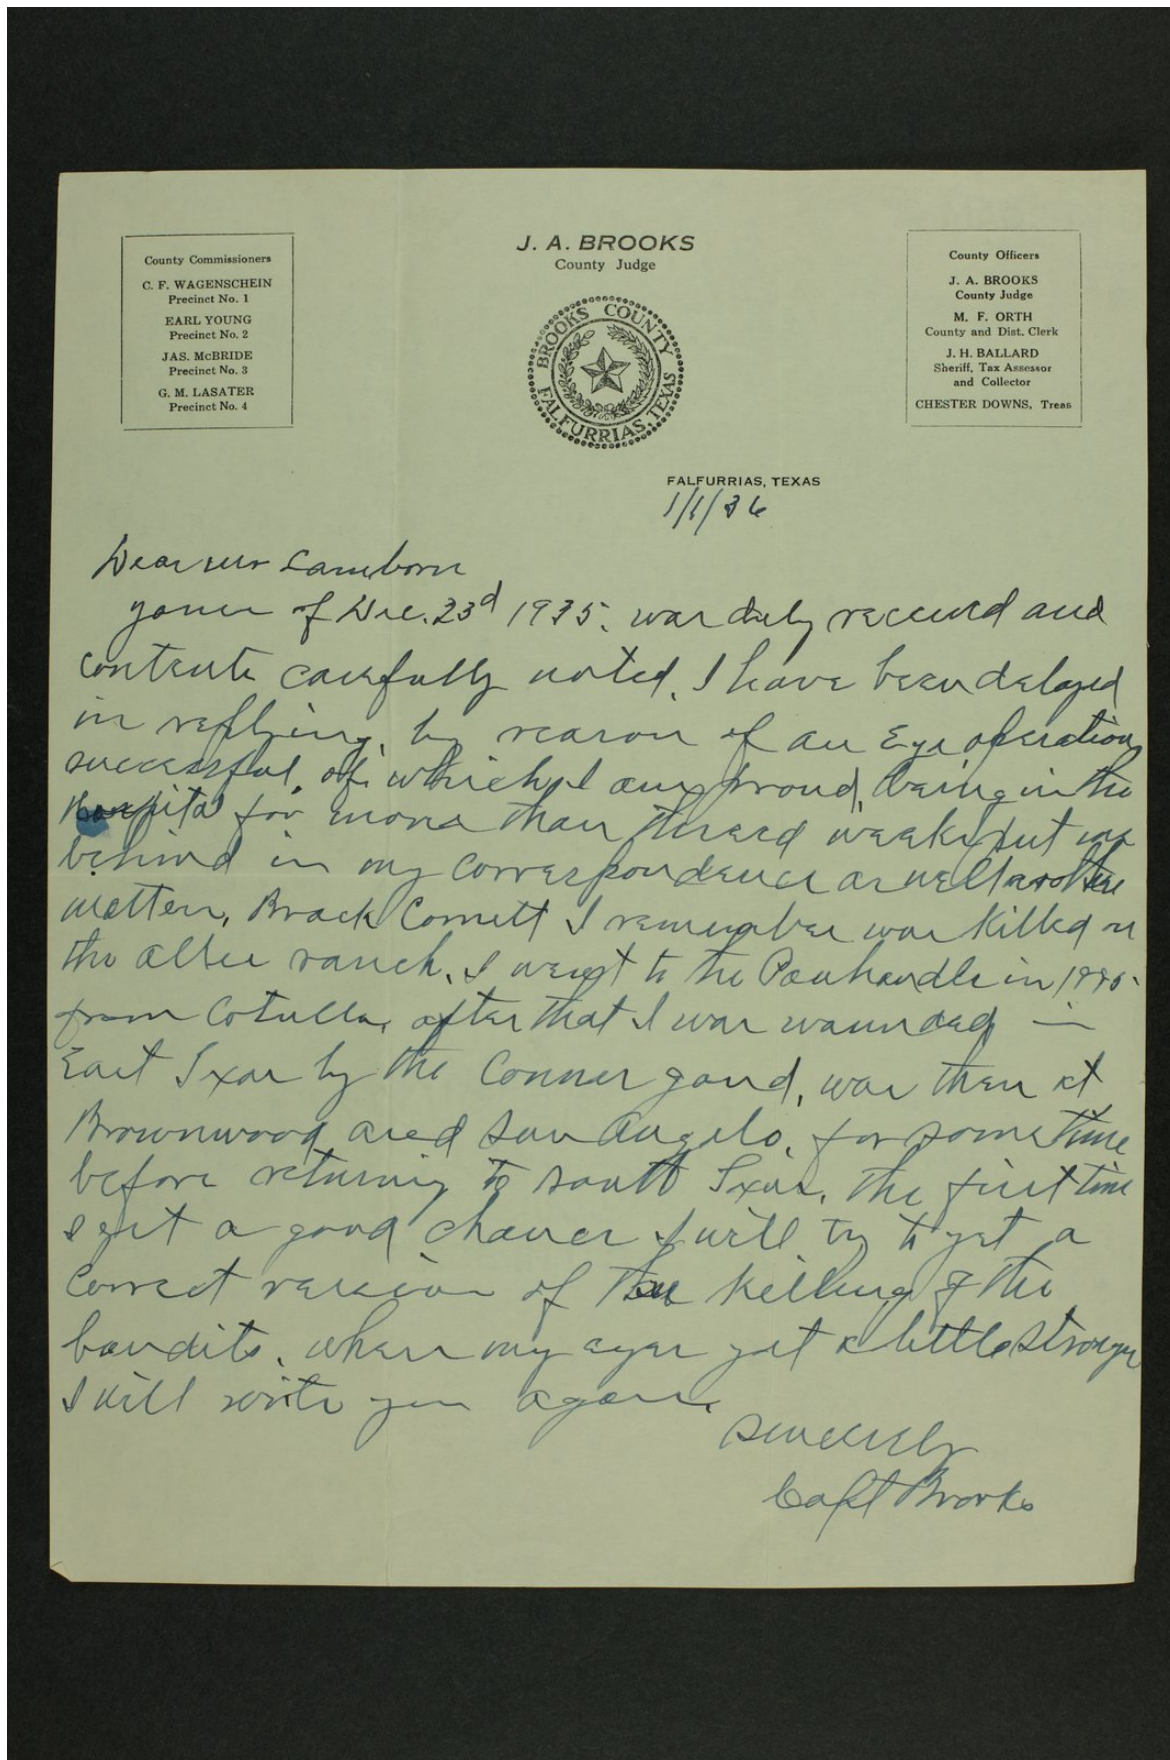 County Commissioners
C. F. WAGENSCHEIN
Precinct No. 1
EARL YOUNG
Precinct No. 2
JAS. McBRIDE
Precinct No. 3
G. M. LASATER
Precinct No. 4
J. A. BROOKS
County Judge
BROOKS COUNTY
FALFURRIAS, TEXAS
County Officers
J. A. BROOKS
County Judge
M. F. ORTH
County and Dist. Clerk
J. H. BALLARD
Sheriff, Tax Assessor
and Collector
CHESTER DOWNS, Treas
FALFURRIAS, TEXAS
1/1/36
Dear Mr Lamborn
yours of Dec. 23d 1935. was duly received and
contents carefully noted, I have been delayed
in replying, by reason of an Eye operation
successful, of which I am proud, being in the
Hospital for more than three weeks put me
behind in my correspondence as well as other
matters, Brack Cornett I remember was killed on
the Albee ranch, I went to the Panhandle in
from Cotulla, after that I was wounded in
East Texas by the Conner gand, was then at
Brownwood and San Angelo, for some time
before returning to South Texas, the first time
I get a good chance I will try to get a
correct version of the killing of the
bandits, when my eyes get a little stronger
I will write you again.
Sincerely
Capt Brooks